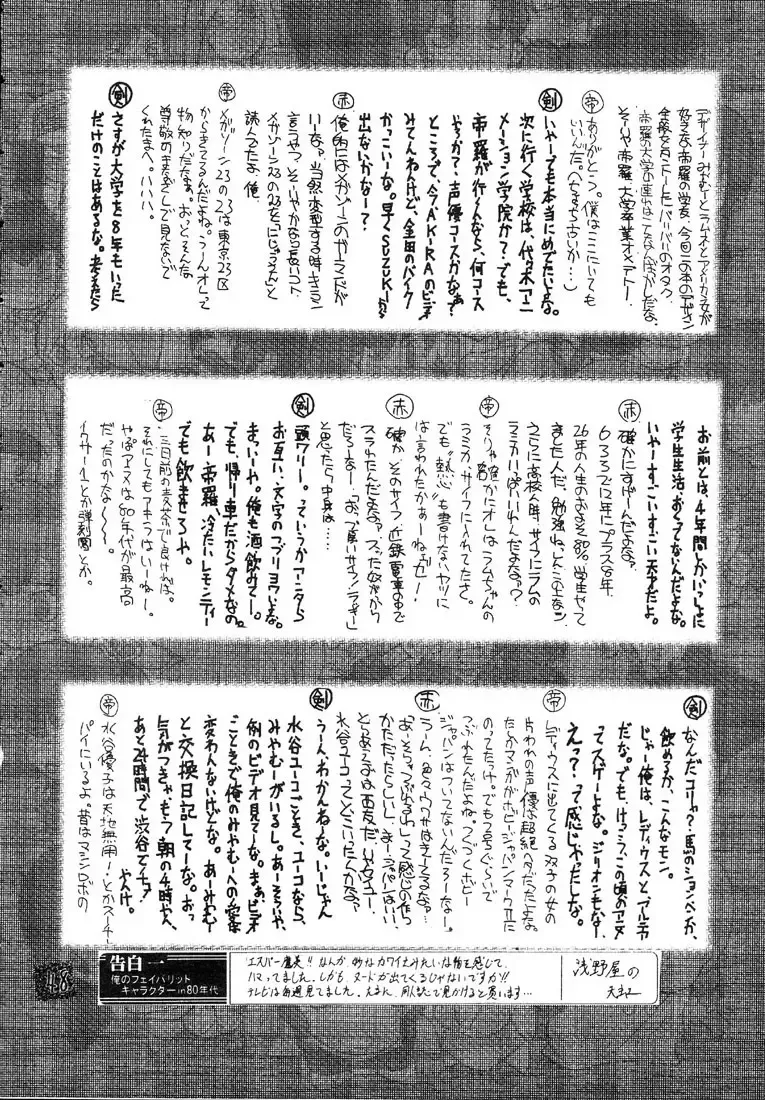 デザイナーみやむーとラムネスとアメリカ女が
好きな、帝羅の学友、今回この本のデザイン
全般をタントーしたバリバリのオタク。
帝羅の大学の連中はこんなんばっかしだな。
そいや帝羅大学卒業オメデトー。
帝 ありがとう。僕はここにいても
いいんだ。(へちょもち古いか…)
剣 いやーでも本当にめでたいよな。
次に行く学校は、代々木アニ
メーション学院か?でも、
帝羅が行くんなら、何コース
やろか?声優コースかなあ?
ところで、今AKIRAのビデオ
みてんねけど、金田のバイク
かっこいーな。早くSUZUKIから
出ないかなー?
赤 俺的にはメガゾーンのガーランドが
いーな。当然変型する時、キュイン
言うやつ。そいやかなり長いコト
メガゾーン23の23を「にじゅうさん」と
読んでたよ、俺。
帝 メガゾーン23の23は東京23区
からきてるんだよね。うーんオレって
物知りだなあ。おっと、そんな
尊敬のまなざしで見ないで
くれたまへ。ハハハ。
剣 さすが大学を8年もいた
だけのことはあるな。考えたら
お前とは、4年間しかいっしょに
学生生活おくってないんだよな。
いやーすごいすごい天才だよ。
赤 確かにすげーんだよな?
633で12年にプラス8年、
26年の人生のおよそ8割学生やって
ました人だ、勉強ねっしんこの上なシ。
さらに高校ん時、サイフにラムの
ラミカいはいれんだよなあ??
帝 そりゃ確かにオレはラムちゃんの
ラミカ、サイフに入れてたさ。
でも"熱心"も書けないヤツに
は言われたかぁーねーぜ!
赤 確か、そのサイフ、近鉄電車の中で
スラれたんだよな?スッた奴だから
だろーなー。「お、ブ厚いサイフ、ラッキー」
と思ったら中身は……
剣 頭ワリー。っていうかアニタら
お互い、文字のブリョウいよな。
まっいーや。俺も酒飲みてー。
でも、帰り車だからダメなの。
あー帝羅、冷たいレモンティー
でも飲ませろや。
帝 三日前の麦茶で良ければ。
それにしてもプチうはいーねー。
やぱアニメは80年代が最高
だったのかな〜〜〜。
イクサー1とか弾劾凰とか。
剣 なんだコリャ?馬のションベンか、
飲めるか、こんなモン。
じゃー俺は、レディウスとアルテ
だな。でも、けっこうこの頃のアニメ
ってスゲーよな。ジリオンもな、
えっ??って感じやったしな。
帝 レディウスに出てくる双子の女の
片われの声優は超絶ヘタだったよな。
たしかマンガがホビージャパンマークIIに
のってたっけ。でもそもそもぐらいで
つぶれたんだよね。つくづくホビー
ジャパンはツイてないんだろーなー。
赤 うーむ、色々ウワサはきーてるよ?…
「あ、そろそろつぶれるナー」って感じの作っ
かただったらしいし、まー、ジャパンはいい
とらぁるよは西友だ!いやユー
水谷ユーコってドコいったんかなァ?
剣 うーん、わかんねーな。いーじゃん
水谷ユーコごとき、ユーコなら、
みやむーがいるし。あーそういや、
例のビデオ見てーな。まあビデオ
ごときで俺のみやむーへの愛は
変わんないけどな。あーみやむー
と交換日記してーな。おっ
気がつきゃ、もう朝の4時や。
あと4時間で渋谷でチチ!
やんけ。
帝 水谷優子は天地無用!とかスーチー
パイにいるよ。昔はマシンロボの
48
告白一
俺のフェイバリット
キャラクターin80年代
「エスパー魔美」!!なんか、妙なカワイさみたいな物を感じて、
ハマってました。しかも、ヌードが出てくるじゃないですか!!
テレビは毎週見てました。大きに、同人誌で見かけると買います…
浅野屋の